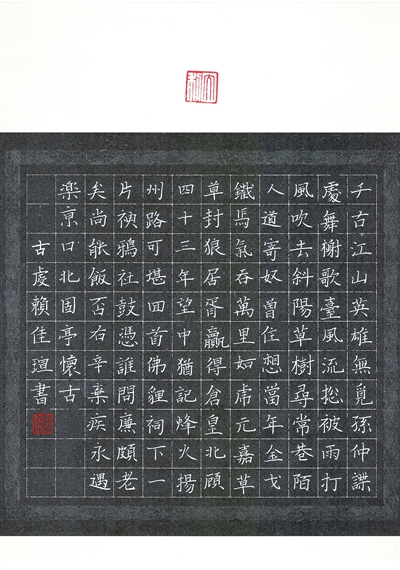 千古江山英雄無覓孫仲謀
處舞榭歌臺風流總被雨打
風吹去斜陽草樹尋常巷陌
人道寄奴曾住想當年金戈
鐵馬氣吞萬里如虎元嘉草
草封狼居胥贏得倉皇北顧
四十三年望中猶記烽火揚
州路可堪回首佛貍祠下一
片神鴉社鼓憑誰問廉頗老
矣尚能飯否右辛棄疾永遇
楽京口北固亭懷古
古虔賴佳瑄書